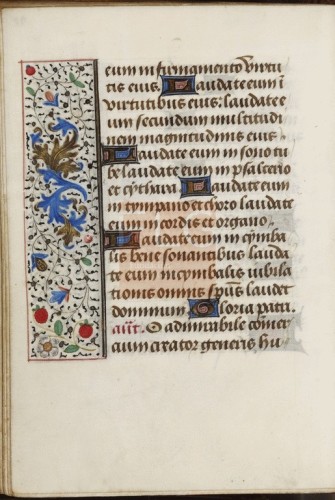 eum in firmamento virtu
tis eius. Laudate eum ī
virtutibus eius: laudate e
um secundum multitudi
nem magnitudinis eius.
Laudate eum in sono tu
be laudate eum in psalterio
et cythara. Laudate eum
in tympano et choro laudate
eum in cordis et organo.
Laudate eum in cymba
lis bene sonantibus lauda
te eum in cymbalis iubila
tionis omnis spūs laudet
dominum. Gloria patri.
añt. O admirabile comer
cium creator generis hu